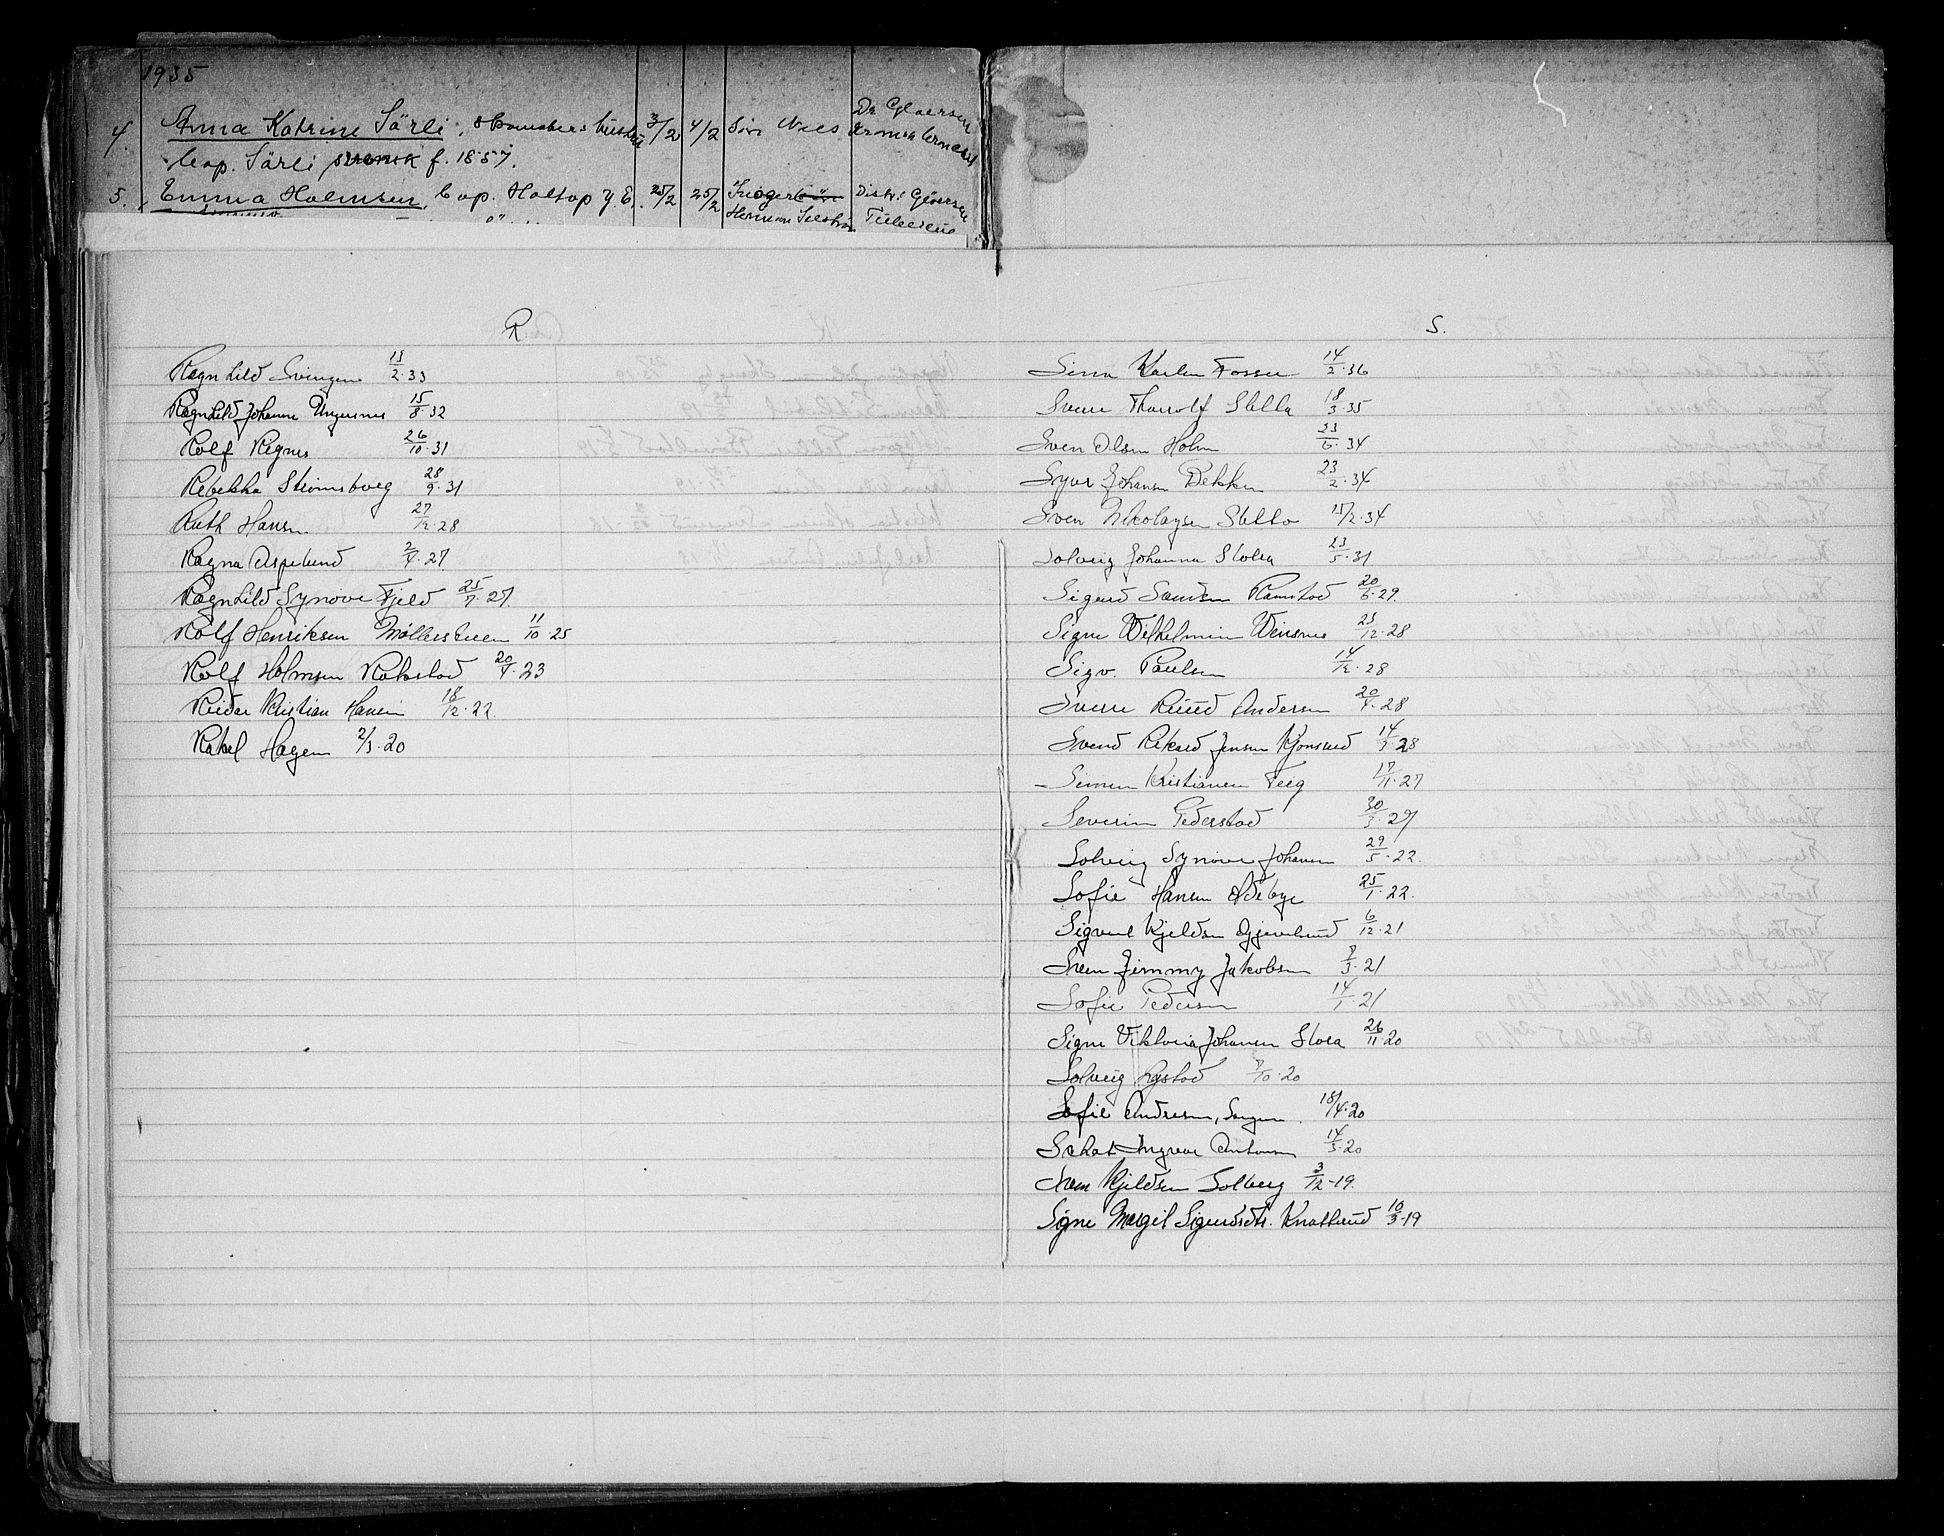 1935
4. Anna Katrine Särli, 3/2 4/2 Dr. Gløersen
Cap. Särli f. 1857.
5. Emma Holmsen, Cap. Holtop 25/2 25/2 Distr. Gløersen
R.
Ragnhild Svingen 13/2.33
Ragnhild Johanne 15/8.32
Rolf Rignes 26/10.31
Rebekka Strømsborg 28/9.31
Ruth Hansen 27/12.28
Ragna Aspelund 2/4.27
Ragnhild Synøve Fjeld 25/7.27
Rolf Henriksen Møllerstuen 11/10.25
Rolf Holmsen Rakstad 20/4.23
Reidar Kristian Hansen 18/12.22
Rakel Hagen 2/3.20
S.
Fosser 14/2.36
Sverre Thorolf Stella 18/3.35
Sven Olsen Holm 23/6.34
Syver Johansen Bekken 23/2.34
Sven Nikolaysen 15/2.34
Solveig Johanna Skolra 23/5.31
Sigurd Ramstad 20/6.29
Signe Wilhelmine 23/12.28
Sigv. Paulsen 14/12.28
Sverre Ruud Andersen 20/4.28
Svend Rikard Jensen Kjonsrud 14/3.28
Simen Kristiansen Teig 17/11.27
Severin Pederstad 30/3.27
Solveig Synøve Johansen 29/5.22.
Sofie Hansen Ødebye 25/1.22.
Sigurd Kjeldsen 6/12.21
Sven Jimmy Jakobsen 7/3.21
Sofie Pedersen 14/1.21
Signe Viktoria Johansen 26/11.20
Solveig Rystad 7/10.20
Sofie Andresen, 18/4.20
Ingvar Antonsen 14/3.20
Sven Kjeldsen Solberg 3/12-19.
Signe Margit Sigurdsdtr. Knatterud 10/3-19